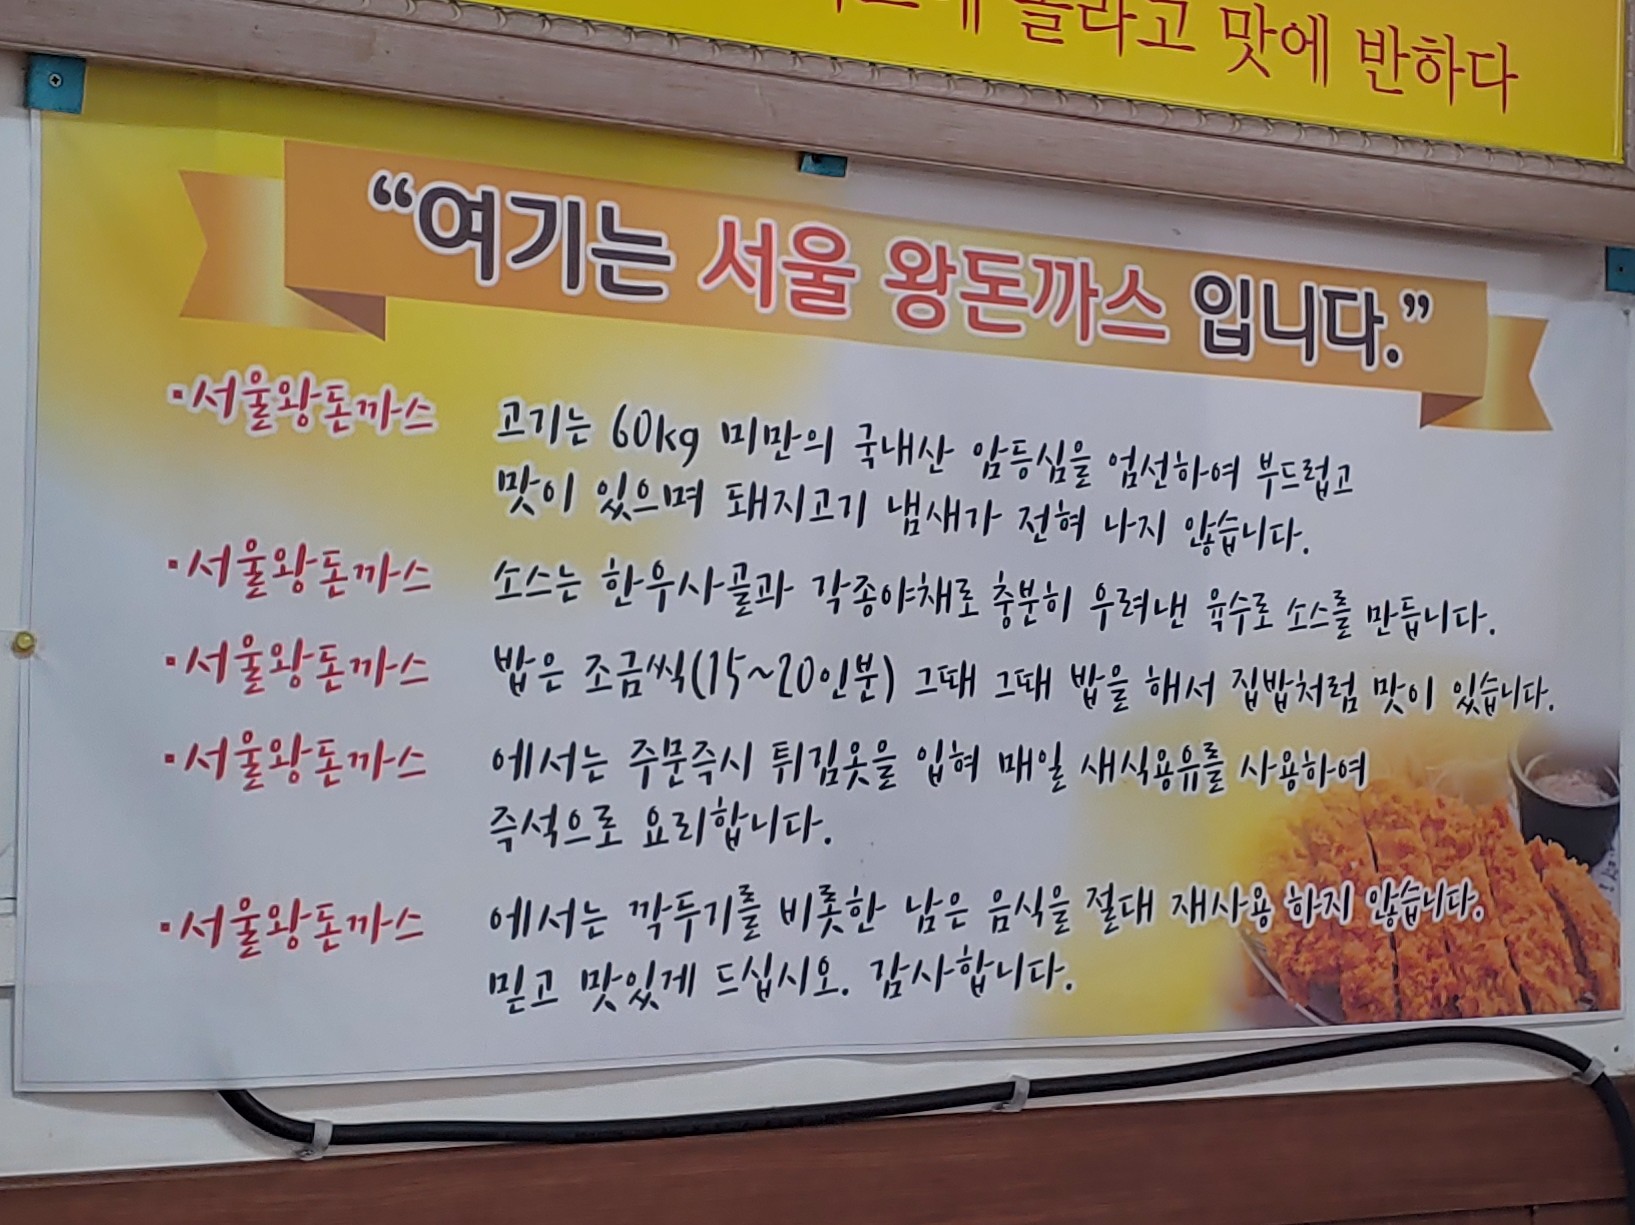 놀라고 맛에 반하다
“여기는 서울 왕돈까스 입니다.”
▪서울왕돈까스 고기는 60kg 미만의 국내산 암등심을 엄선하여 부드럽고
맛이 있으며 돼지고기 냄새가 전혀 나지 않습니다.
▪서울왕돈까스 소스는 한우사골과 각종야채로 충분히 우려낸 육수로 소스를 만듭니다.
▪서울왕돈까스 밥은 조금씩(15~20인분) 그때 그때 밥을 해서 집밥처럼 맛이 있습니다.
▪서울왕돈까스 에서는 주문즉시 튀김옷을 입혀 매일 새식용유를 사용하여
즉석으로 요리합니다.
▪서울왕돈까스 에서는 깍두기를 비롯한 남은 음식을 절대 재사용 하지 않습니다.
믿고 맛있게 드십시오. 감사합니다.